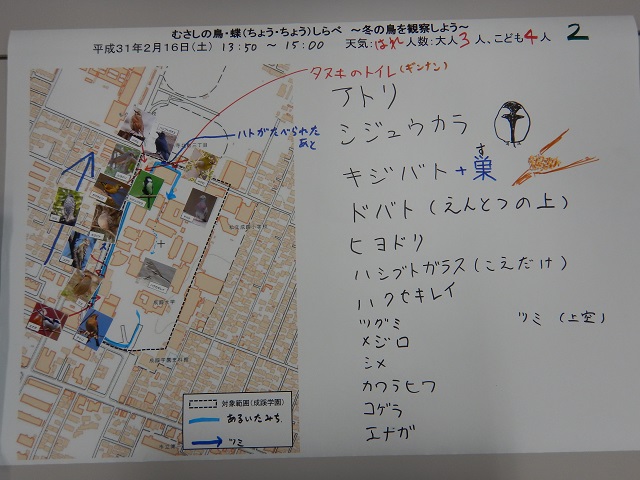 むさしの鳥・蝶(ちょう・ちょう)しらべ ～冬の鳥を観察しよう～
平成31年2月16日(土) 13:50 ～ 15:00 天気:はれ 人数:大人3人、こども4人 2
タヌキのトイレ(ギンナン)
ハトがたべられた
あと
アトリ
シジュウカラ
キジバト + 巣
す
ドバト(えんとつの上)
ヒヨドリ
ハシブトガラス(こえだけ)
ハクセキレイ
ツグミ
ツミ (上空)
メジロ
シメ
カワラヒワ
コゲラ
エナガ
対象範囲(成蹊学園)
あるいたみち
ツミ